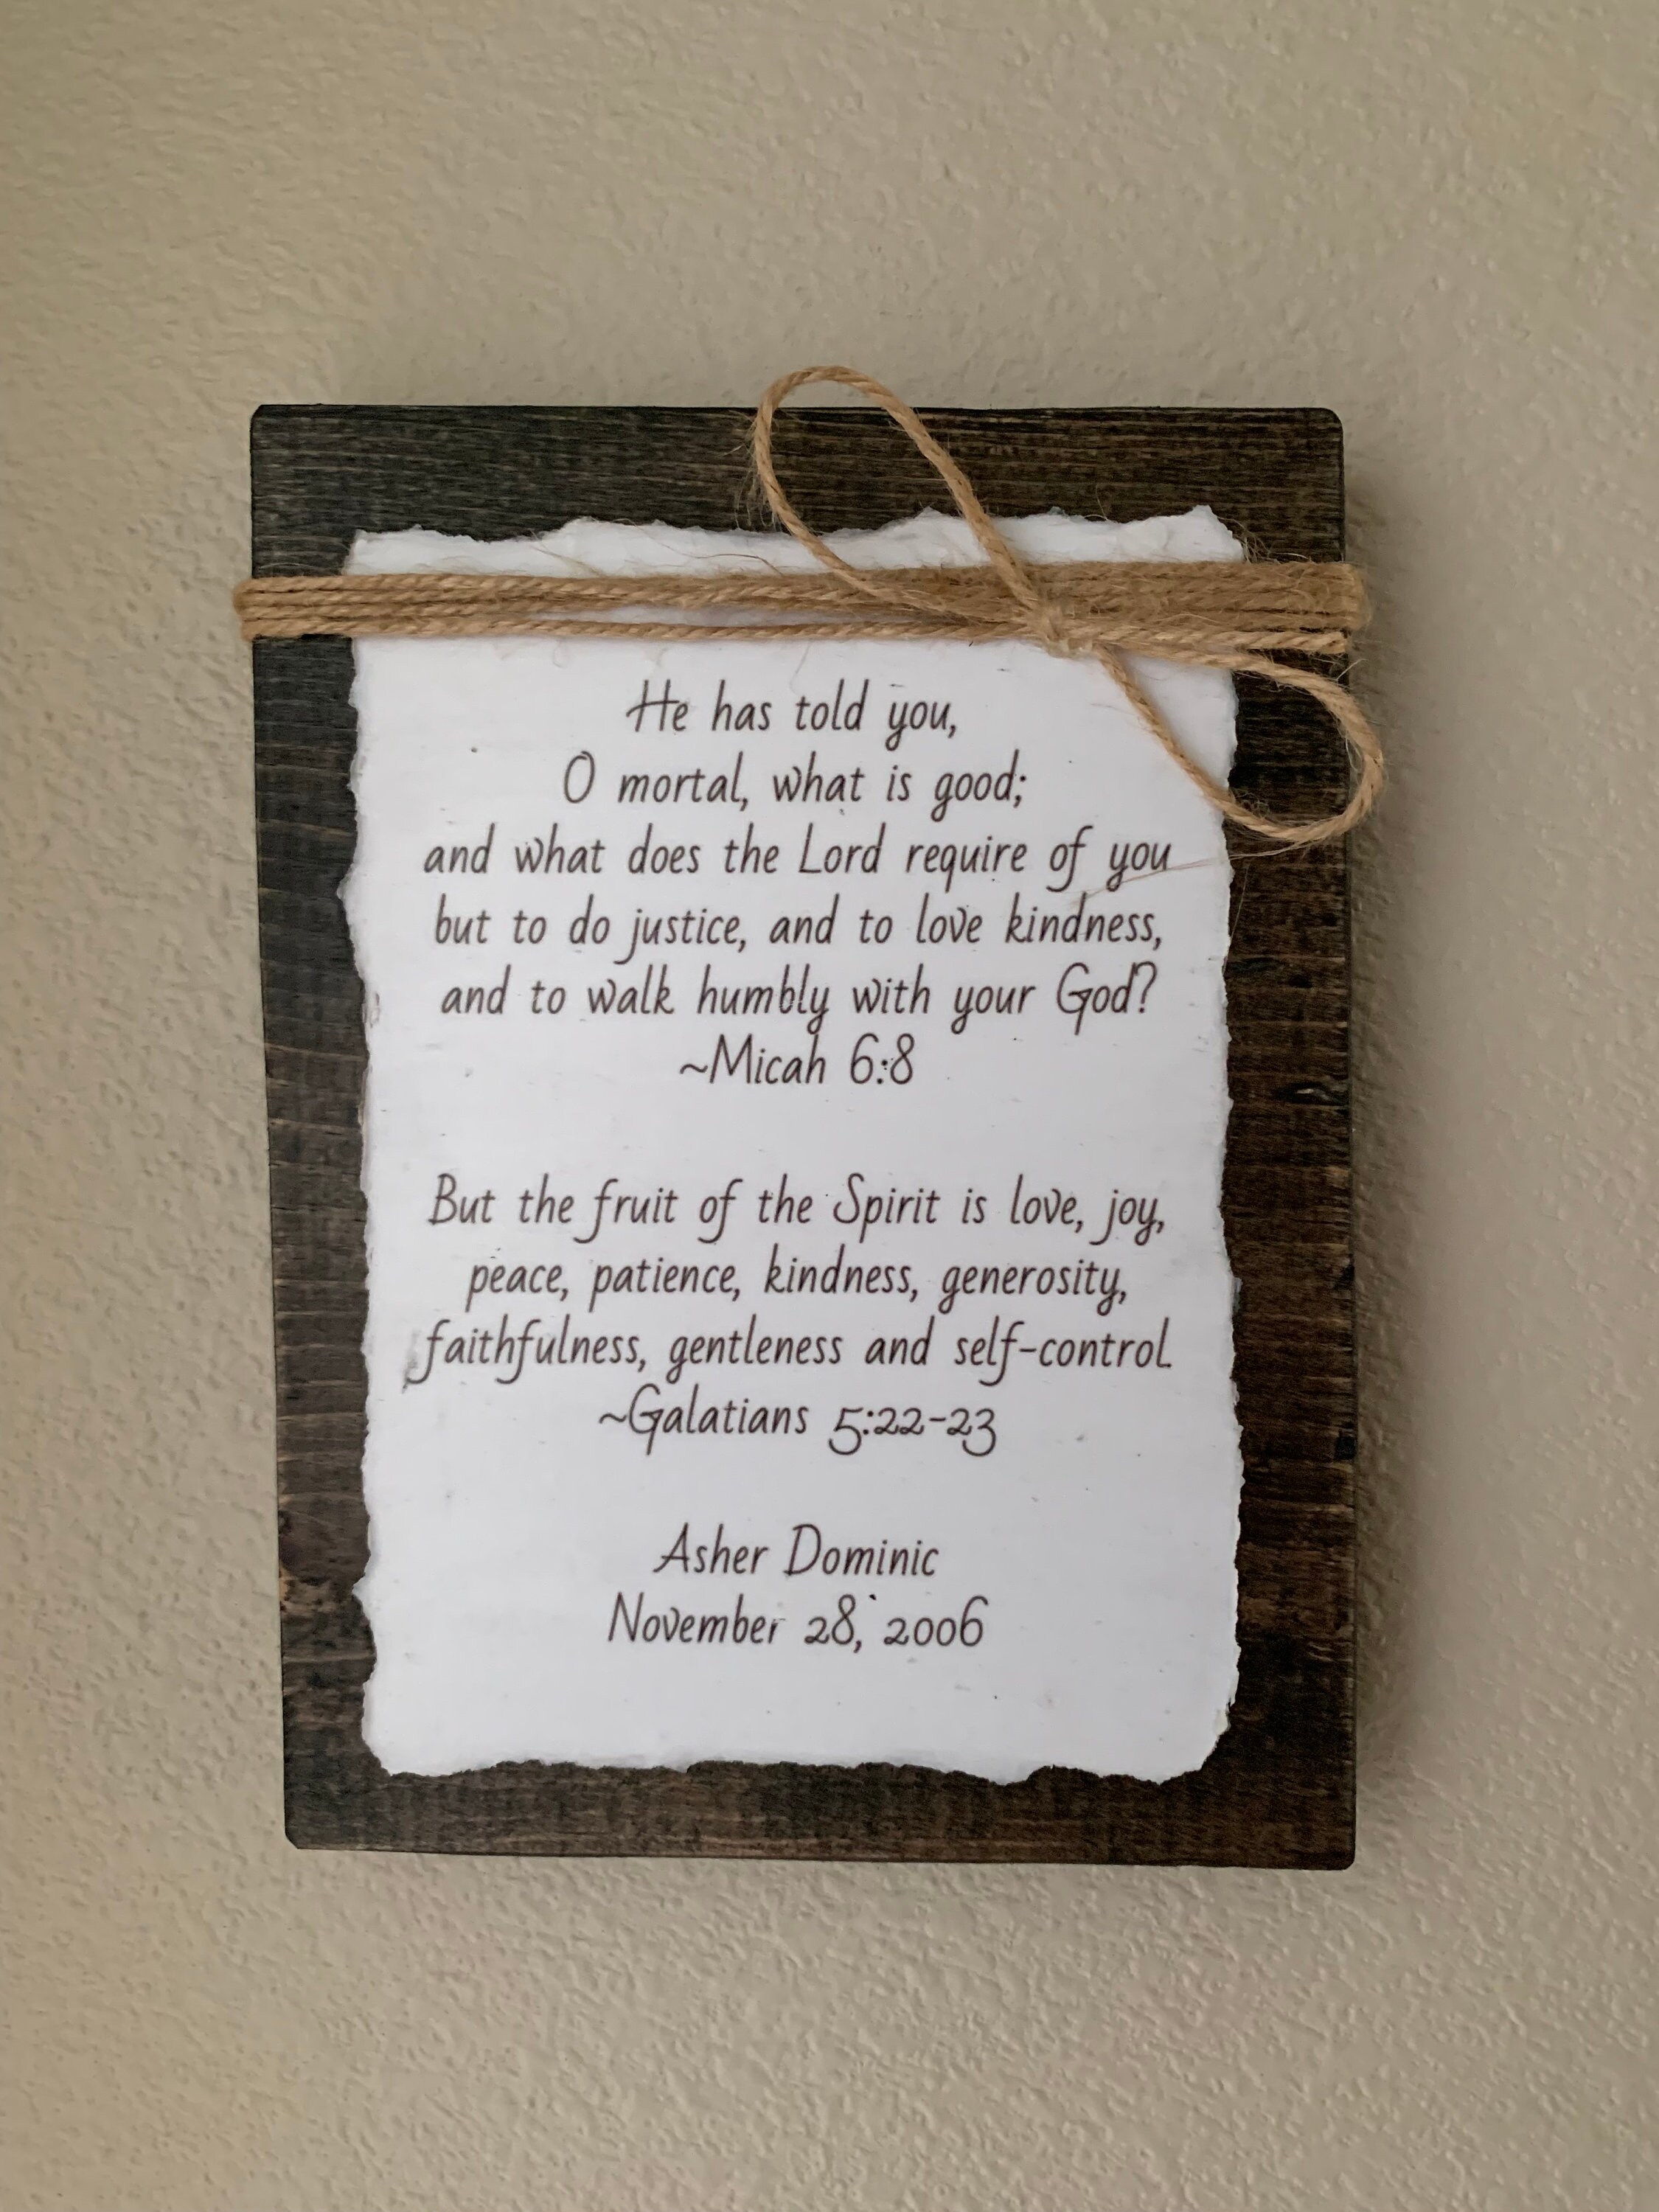 He has told you,
O mortal, what is good;
and what does the Lord require of you
but to do justice, and to love kindness,
and to walk humbly with your God?
~Micah 6:8
But the fruit of the Spirit is love, joy,
peace, patience, kindness, generosity,
faithfulness, gentleness and self-control.
~Galatians 5:22-23
Asher Dominic
November 28, 2006